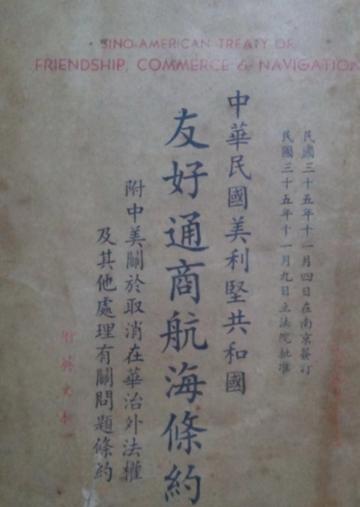 SINO-AMERICAN TREATY OF
FRIENDSHIP, COMMERCE & NAVIGATION
民國三十五年十一月四日在南京簽訂
民國三十五年十一月九日立法院批准
中華民國美利堅共和國
友好通商航海條約
附中美關於取消在華治外法權
及其他處理有關問題條約
附英文本